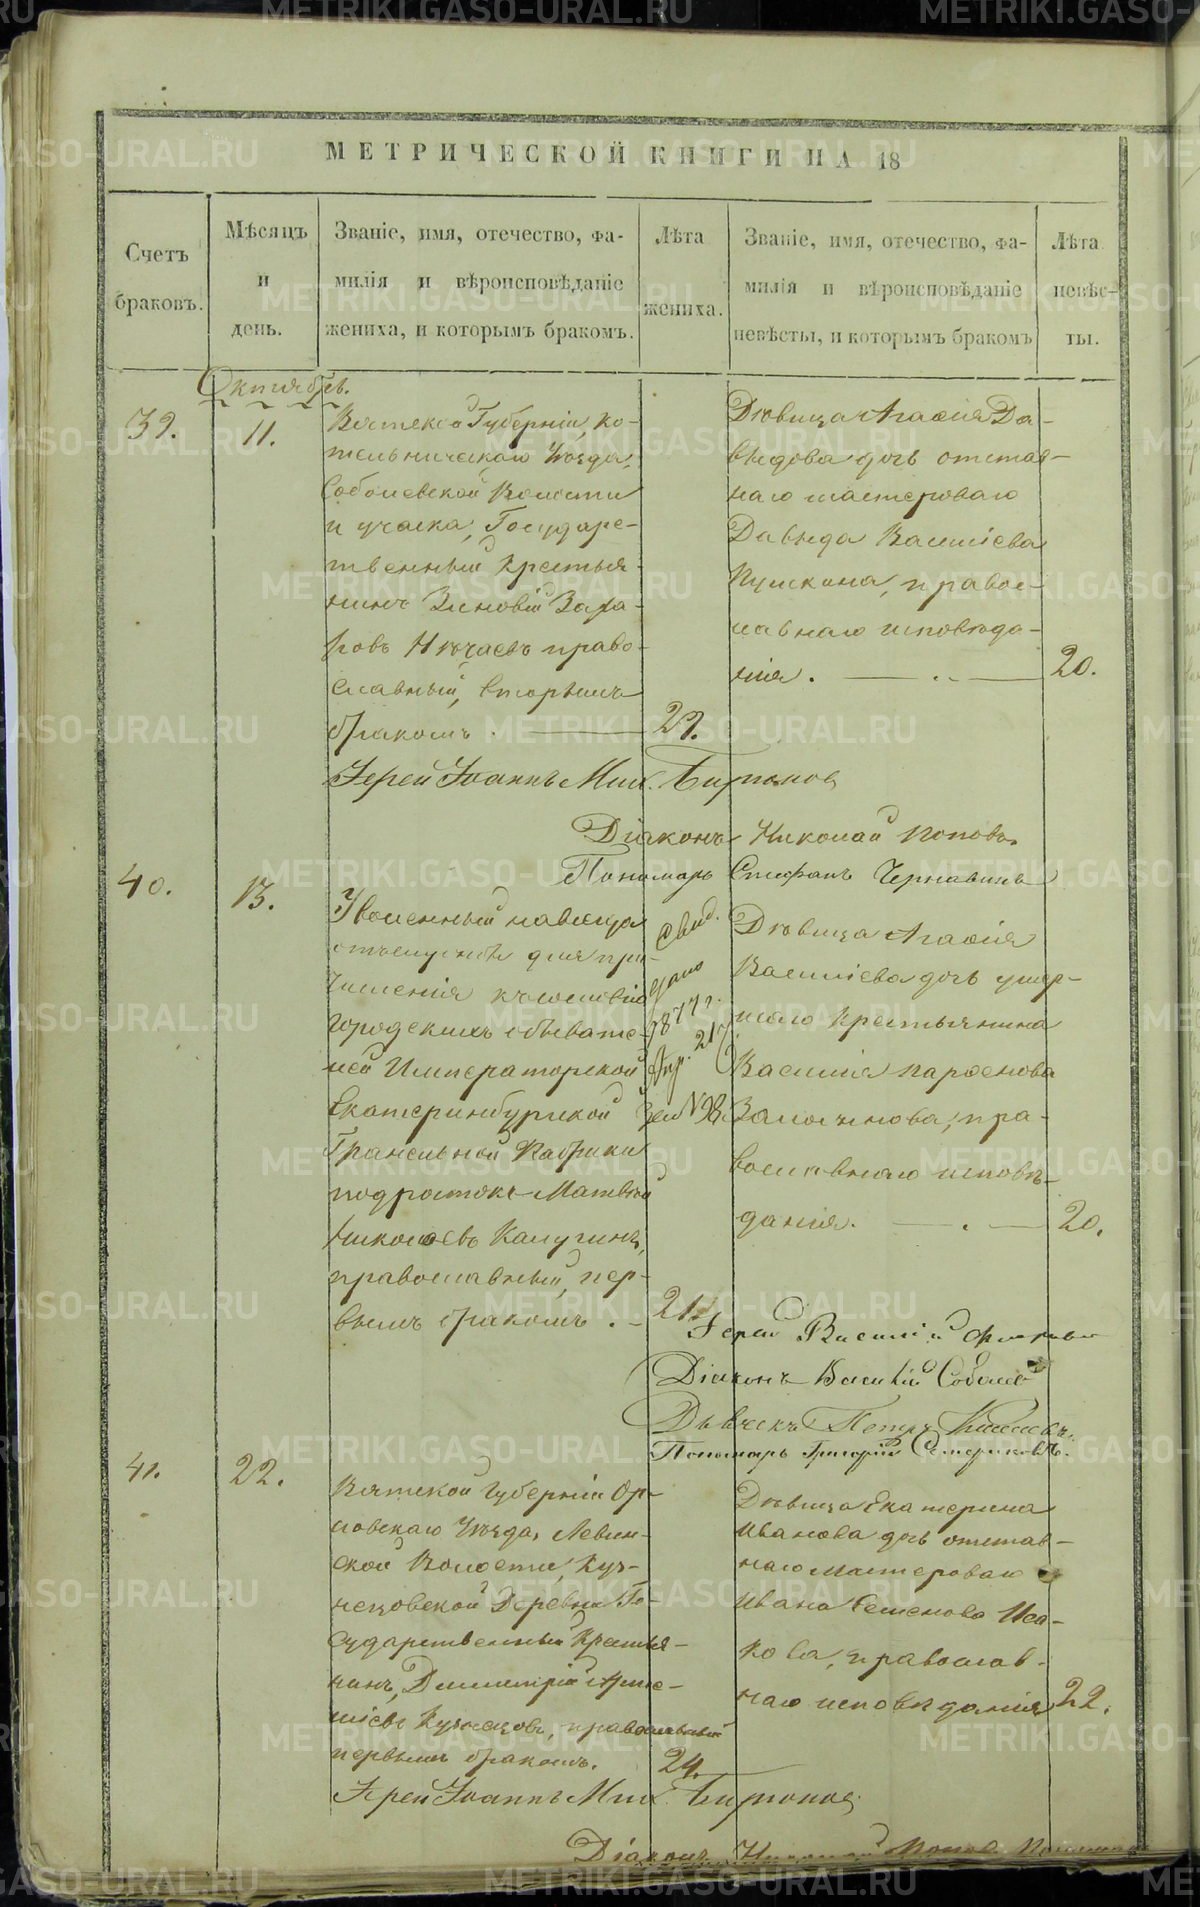 МЕТРИЧЕСКОЙ КНИГИ НА 18
Счетъ браковъ.
Мѣсяцъ и день.
Званіе, имя, отечество, фа-
милія и вѣроисповѣданіе
жениха, и которымъ бракомъ.
Лѣта жениха.
Званіе, имя, отечество, фа-
милія и вѣроисповѣданіе
невѣсты, и которымъ бракомъ
Лѣта невѣс-
ты.
Октябрь.
39.
11.
Вятской Губерніи, Ко-
тельническаго Уѣзда,
Соболевской Волости
и участка, Государс-
твенный Крестья-
нинъ Зиновій Заха-
ровъ Нѣчаевъ право-
славный, вторымъ
бракомъ.
29.
Дѣвица Агафія Да-
выдова дочь отстав-
наго мастероваго
Давыда Василіева
Пушкина, правос-
лавнаго исповѣда-
нія.
20.
Іерей Іоаннъ Мих. Бирюков
Діаконъ Николай Поповъ
Пономарь Стефанъ Чернавинъ
40.
13.
Уволенный навсегда
для при-
численія къ сословію
городскихъ обывате-
лей Императорской
Екатеринбургской
Гранильной Фабрики
подростокъ Матвѣй
Николаевъ Калугинъ,
православный, пер-
вымъ бракомъ.
21.
Свид.
дано
1877 г.
Апр. 21
№ 98.
Дѣвица Агафія
Василіева дочь умер-
шаго Крестьянина
Василія Парфенова
православнаго исповѣ-
данія.
20.
Іерей Василій
Діаконъ Василій
Дьячекъ Петръ
Пономарь Григорій
41.
22.
Вятской Губерніи Ор-
ловскаго Уѣзда, Левин-
ской Волости, Куз-
нецовской Деревни Го-
сударственный Крестья-
нинъ, Димитрій
Кузнецовъ, православный
первымъ бракомъ.
24.
Дѣвица Екатерина
Иванова дочь отстав-
наго мастероваго
Ивана Семенова Иса-
кова, православ-
наго исповѣданія
22.
Іерей Іоаннъ Мих. Бирюков
Діаконъ Николай Попов
METRIKI.GASO-URAL.RU